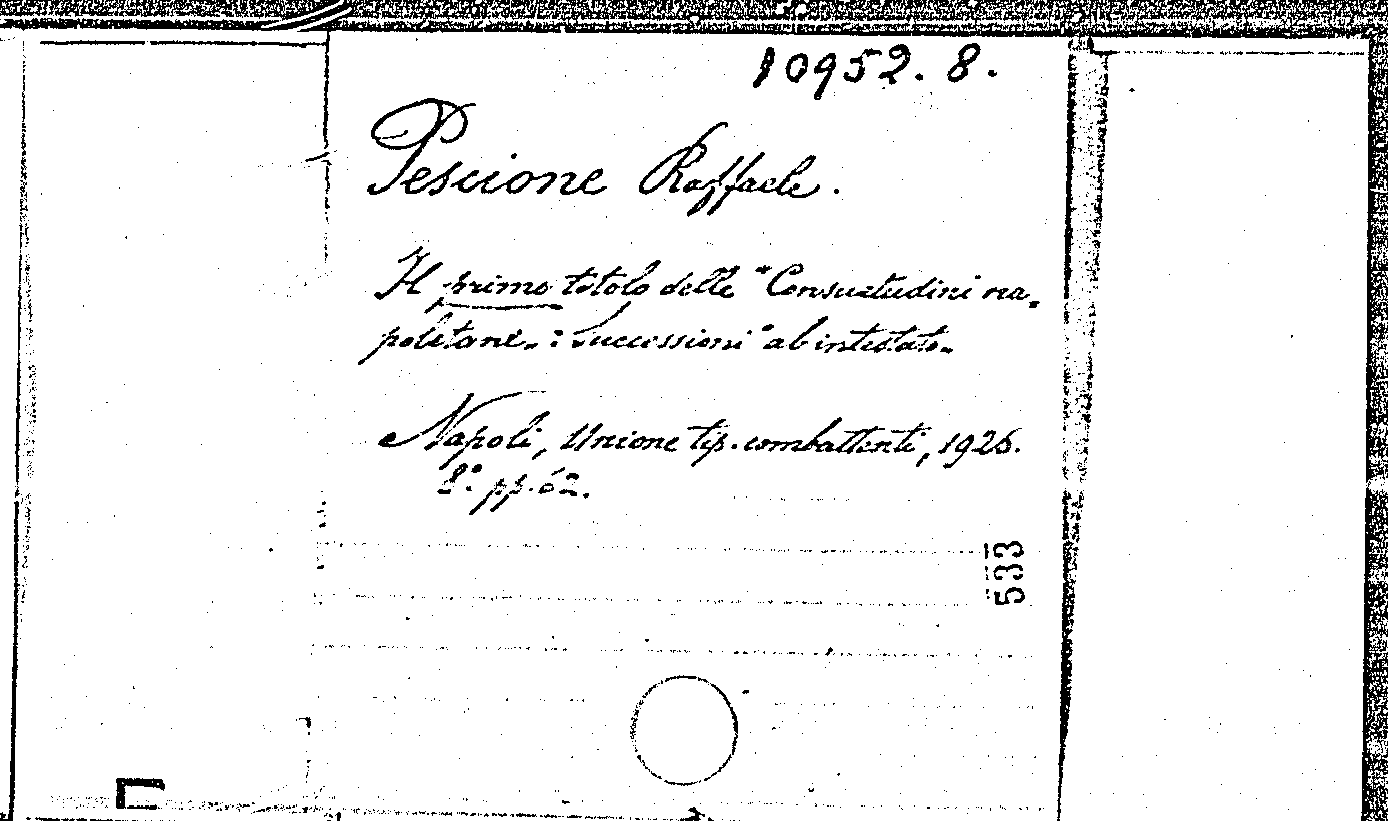 10952. 8.
Pescione Raffaele.
Il primo titolo delle "Consuetudini na-
poletane„: Successioni "ab intestato„
Napoli, Unione tip. combattenti, 1926.
8º pp. 62.
533